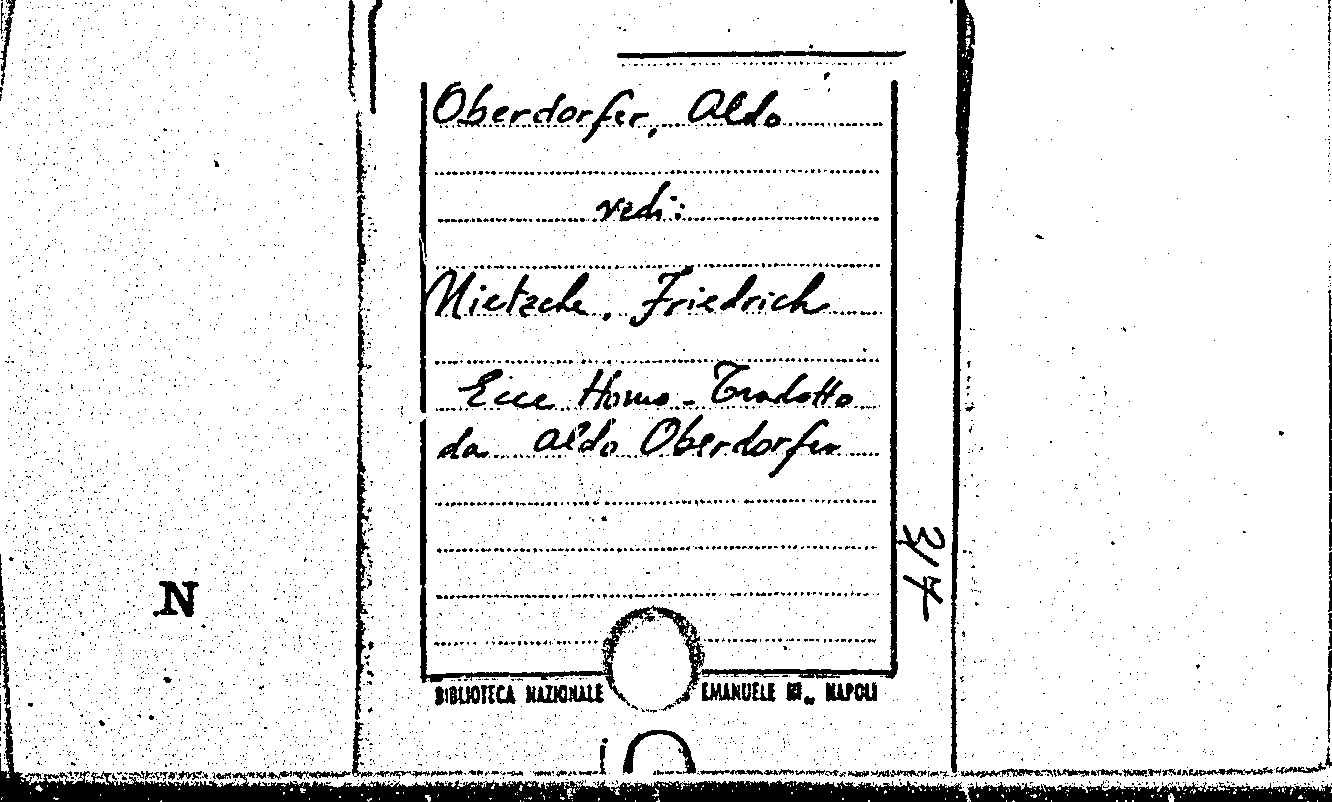 Oberdorfer, Aldo
vedi:
Nietzsche, Friedrich
Ecce Homo - Tradotto
da Aldo Oberdorfer
N
BIBLIOTECA NAZIONALE EMANUELE III„ NAPOLI